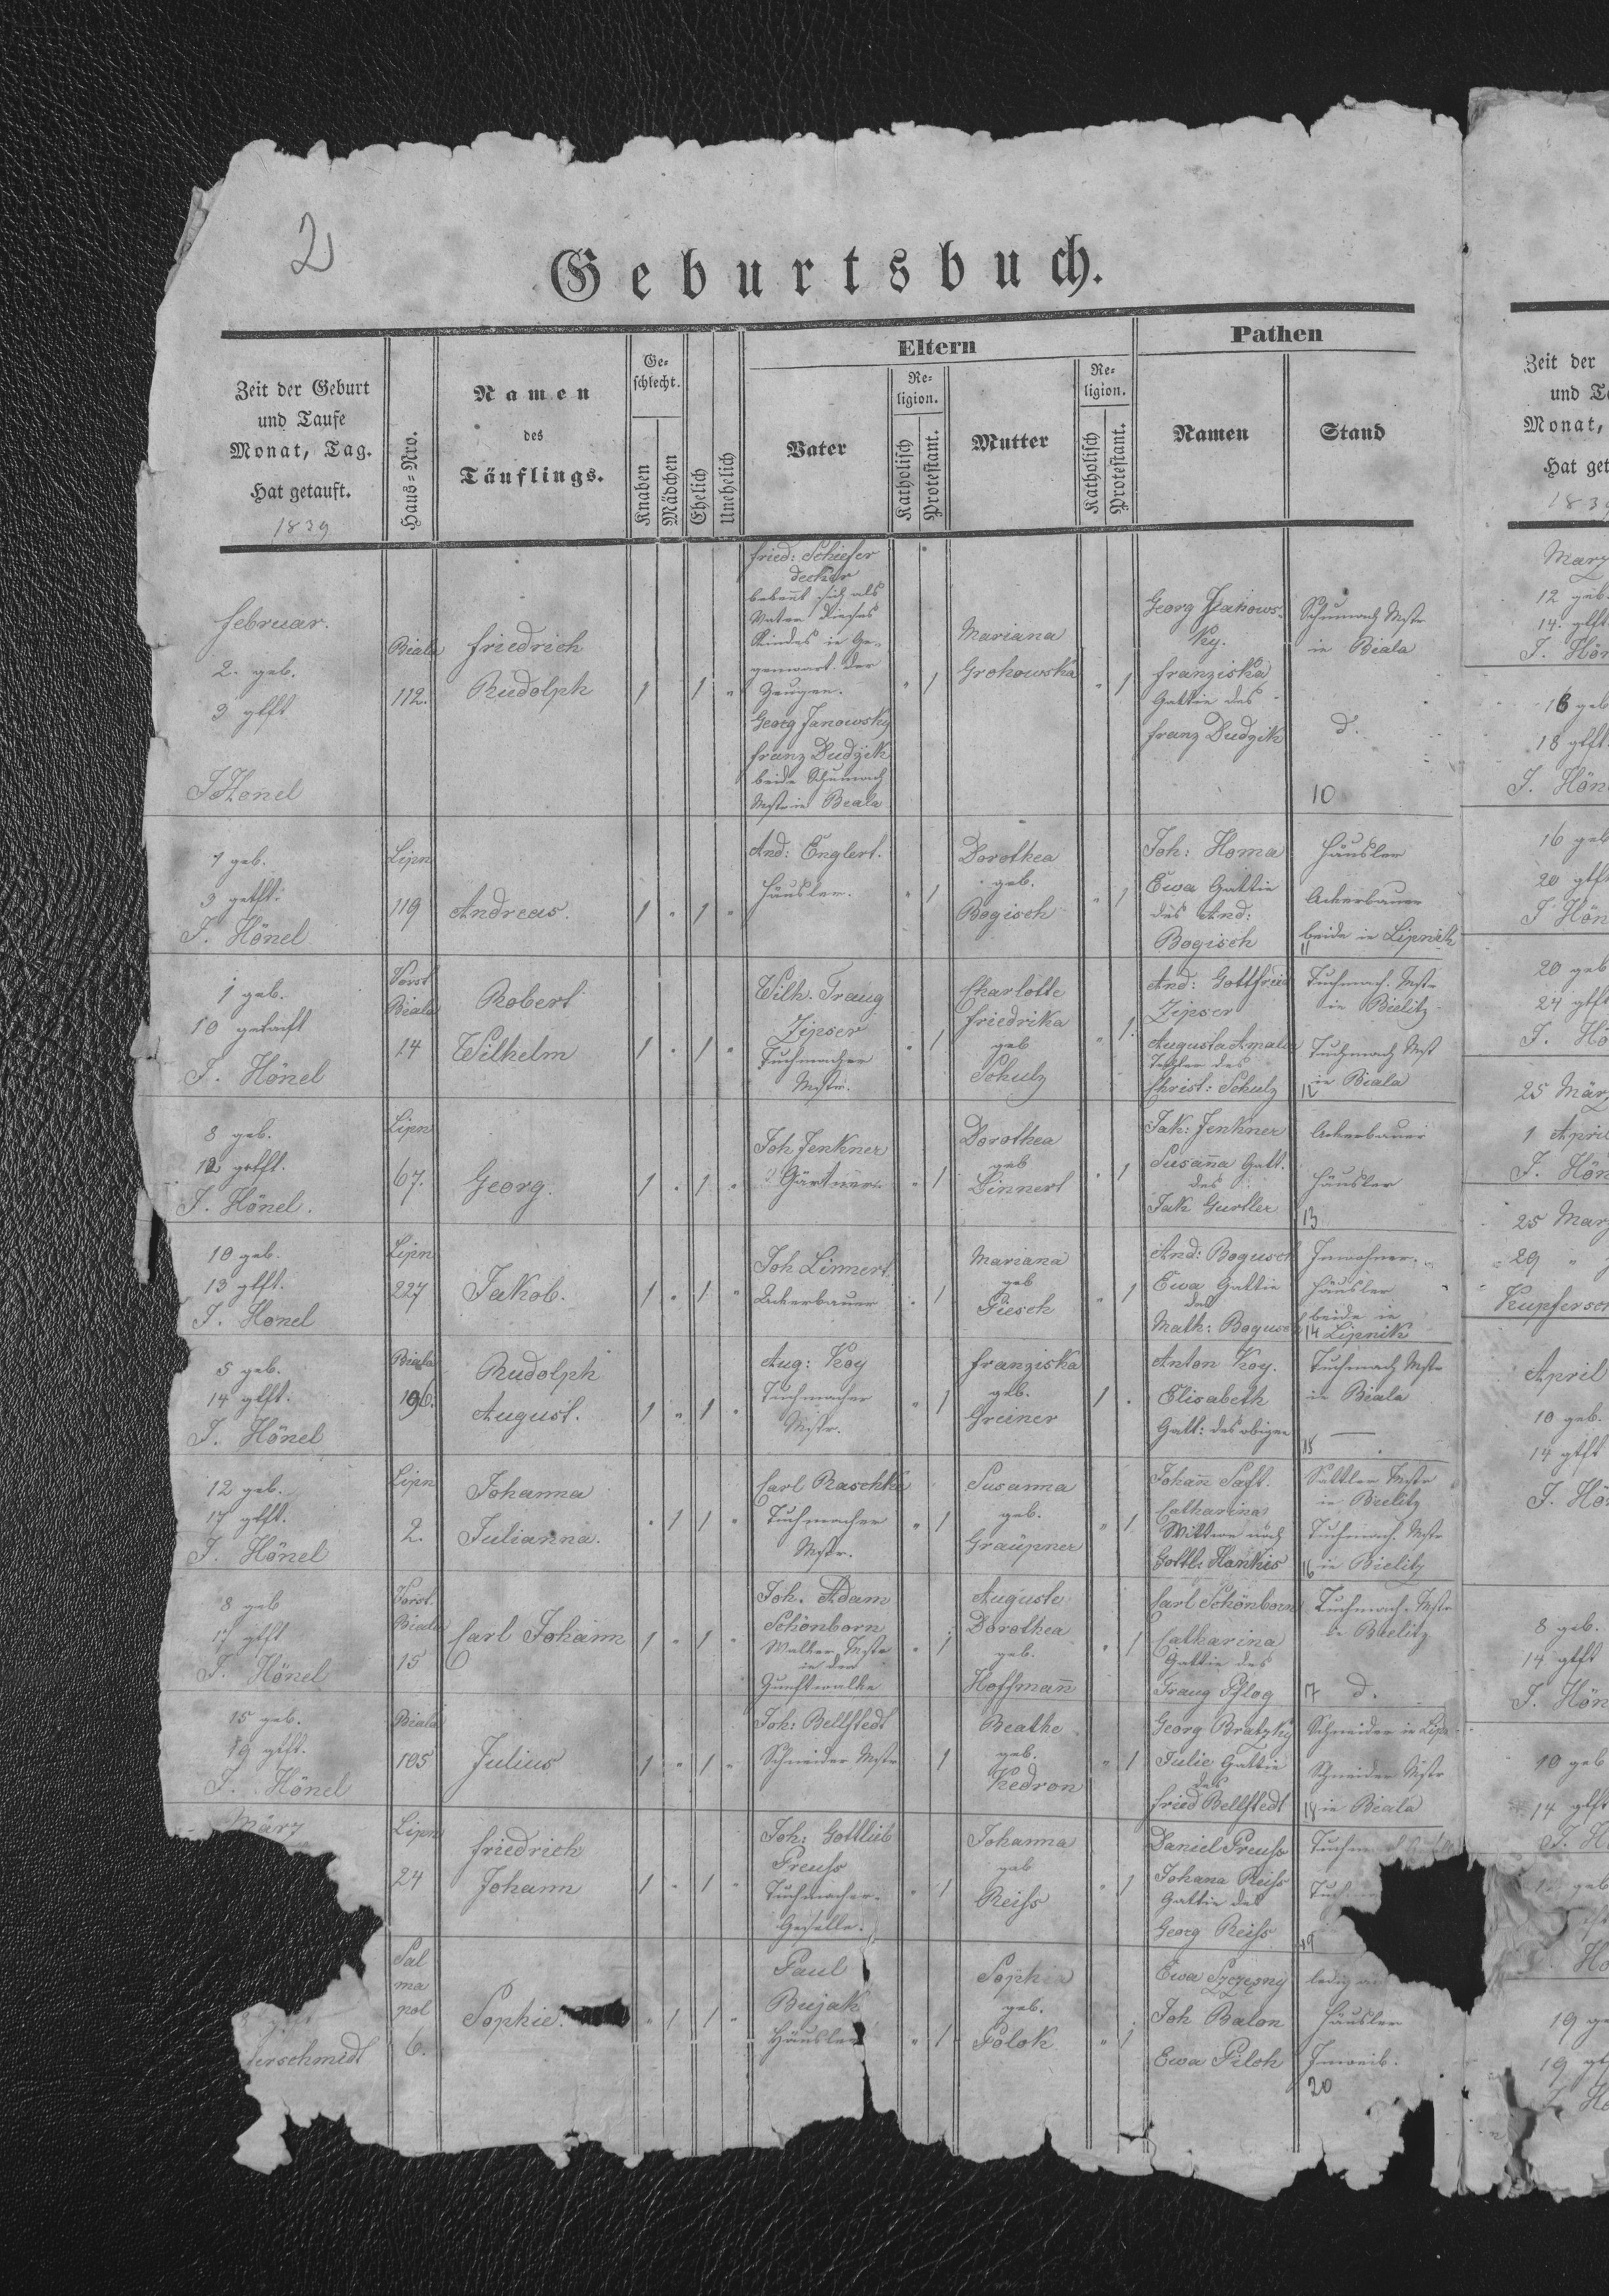 2
Geburtsbuch.
Zeit der Geburt
und Taufe
Monat, Tag.
Hat getauft.
1839
Haus-Nro.
Namen
des
Täuflings.
Ge-
schlecht.
Knaben
Mädchen
Ehelich
Unehelich
Eltern
Vater
Re-
ligion.
Katholisch
Protestant.
Mutter
Re-
ligion.
Katholisch
Protestant.
Pathen
Namen
Stand
Februar.
2. geb.
3 gtft
J Hönel
Biala
112.
Friedrich
Rudolph
1
1 "
Fried: Schiefer
decker
bekent sich als
Vater dieses
Kindes in Ge-
genwart der
Zeugen.
Georg Janowsky
Franz Dudzik
beide Schumach
Mstr in Biala
" 1
Mariana
Grohowska
" 1
Georg Janows-
ky.
Franziska
Gattin des
Franz Dudzik
Schumach Mstr
in Biala
d.
10
7 geb.
9 getft:
J. Hönel
Lipn
119
Andreas.
1 " 1 "
And: Englert.
Häusler.
" 1
Dorothea
geb.
Bogisch
" 1
Joh: Homa
Ewa Gattin
des And:
Bogisch
Häusler
Ackerbauer
beide in Lipnik
11
1 geb.
10 getauft
J. Hönel
Vorst
Biala
14
Robert
Wilhelm
1 " 1 "
Wilh. Traug
Zipser
Tuchmacher
Mstr.
" 1
Charlotte
Friedrika
geb
Schulz
" 1
And: Gottfried
Zipser
Augusta Amalie
Tochter des
Christ: Schulz
Tuchmach. Mstr
in Bielitz
Tuchmach Mst
in Biala
12
8 geb.
12 getft.
J. Hönel.
Lipn
67.
Georg.
1 " 1 "
Joh Jenkner
Gärtner.
" 1
Dorothea
geb
Linnert
" 1
Jak: Jenkner
Susanna Gatt.
des
Jak Gurtler
Ackerbauer
Häusler
13
10 geb.
13 gtft.
J. Hönel
Lipn
227
Jakob.
1 " 1 "
Joh Linnert
Ackerbauer
" 1
Mariana
geb
Giesch
" 1
And: Bogusch
Ewa Gattin
des
Math: Bogusch
Inwohner.
Häusler
beide in
14 Lipnik
5 geb.
14 gtft.
J. Hönel
Biala
196.
Rudolph
August.
1 " 1 "
Aug: Koy
Tuchmacher
Mstr.
" 1
Franziska
geb.
Greiner
1 "
Anton Koy.
Elisabeth
Gatt: des obigen
Tuchmach Mstr
in Biala
15
12 geb.
17 gtft.
J. Hönel
Lipn
2.
Johanna
Julianna.
" 1 1 "
Carl Raschke
Tuchmacher
Mstr.
" 1
Susanna
geb.
Graupner
" 1
Johan Saft.
Catharina
Wittwe nach
Gottl: Hankis
Sattler Mstr
in Bielitz
Tuchmach. Mstr
16 in Bielitz
8 geb
17 gtft
J. Hönel
Vorst.
Biala
15
Carl Johann
1 " 1 "
Joh. Adam
Schönborn
Walker Mstr
in der
Zunftwalke
" 1
Auguste
Dorothea
geb.
Hoffmann
" 1
Carl Schönborn
Catharina
Gattin des
Traug Pflog
Tuchmach. Mstr
in Bielitz
17 d.
15 geb.
19 gtft.
J. Hönel
Biala
105
Julius
1 " 1 "
Joh: Bellstedt
Schneider Mstr
1
Beathe
geb.
Kedron
" 1
Georg Bratzky
Julie Gattin
des
Fried Bellstedt
Schneider in Lipn
Schneider Mstr
18 in Biala
März
Lipn
24
Friedrich
Johann
1 " 1 "
Joh: Gottlieb
Preuss
Tuchmacher-
Geselle.
" 1
Johanna
geb
Reiss
" 1
Daniel Preuss
Johana Reiss
Gattin des
Georg Reiss
19
erschmidt
Sal
ma
pol
6.
Sophie.
" 1 1 "
Paul
Bujak
Häusler
" 1
Sophia
geb.
Polok
" 1
Ewa Szczęsny
Joh Balon
Ewa Piloh
ledig
Häusler
Inweib.
20
Zeit der
Monat,
1839
März
12 geb.
14. gtft
J. Hön
16 geb
18 gtft.
J. Hön
16 geb
20 gtft
J Hön
20 geb
24 gtft
J. Hö
25 März
1 April
J. Hön
25 März
29 "
Kupfersch
April
10 geb.
14 gtft
J. Hö
8 geb.
14 gtft
J. Hön
10 geb
14 gtft
J. H
19 ge
19 gt